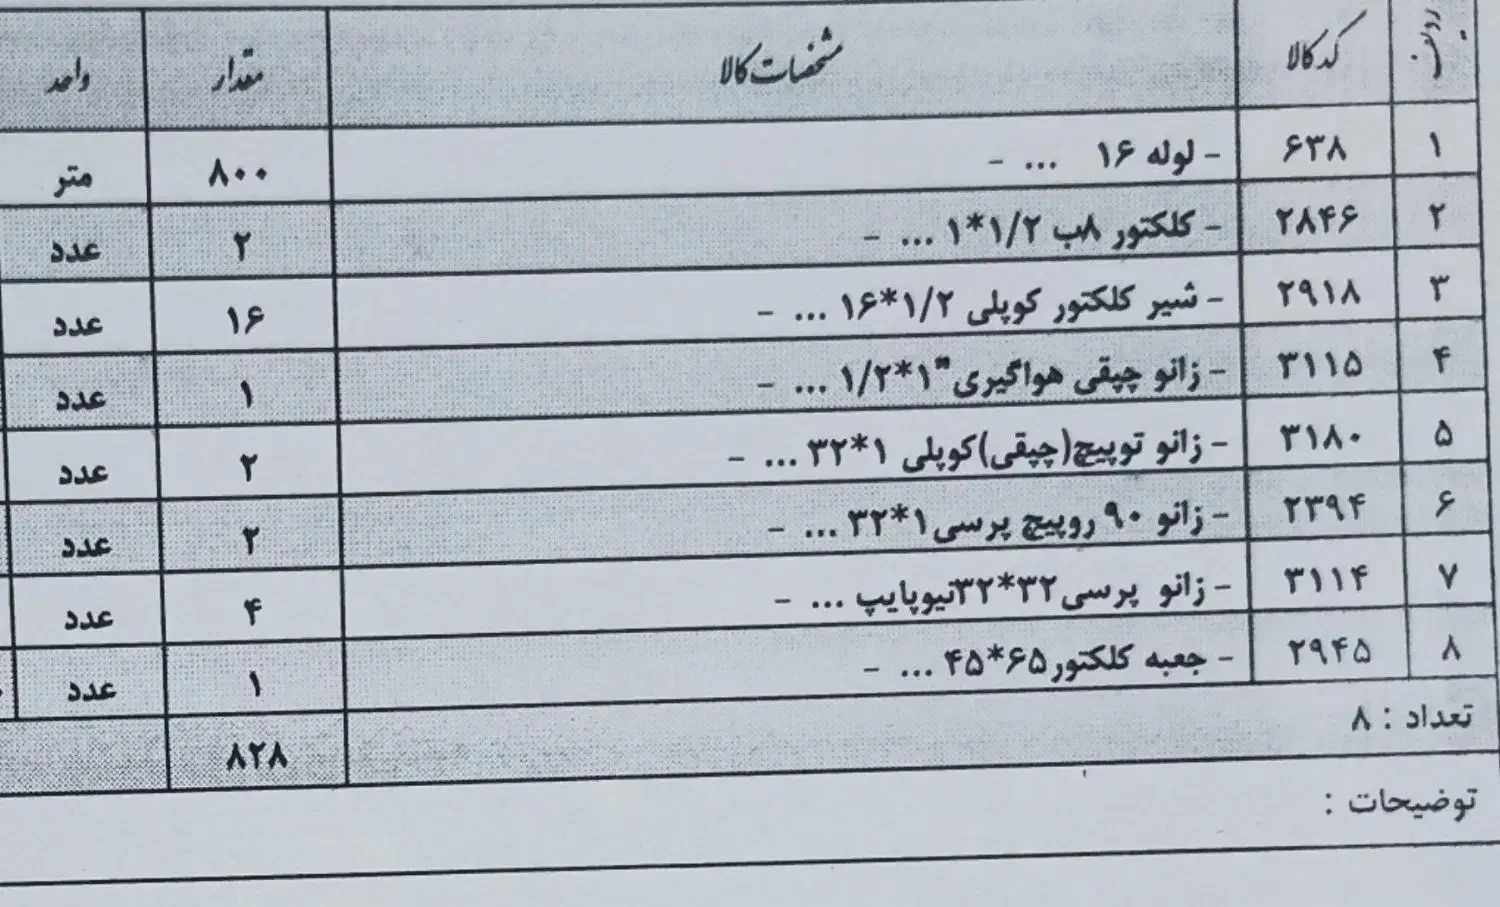 ردیف کد کالا مشخصات کالا مقدار واحد
۱ ۶۳۸ - لوله ۱۶ ... - ۸۰۰ متر
۲ ۲۸۴۶ - کلکتور ۸ب ۱/۲*۱ ... - ۲ عدد
۳ ۲۹۱۸ - شیر کلکتور کوپلی ۱/۲*۱۶ ... - ۱۶ عدد
۴ ۳۱۱۵ - زانو چپقی هواگیری"۱*۱/۲ ... - ۱ عدد
۵ ۳۱۸۰ - زانو توپیچ(چپقی)کوپلی ۱*۳۲ ... - ۲ عدد
۶ ۲۳۹۴ - زانو ۹۰ روپیچ پرسی۱*۳۲ ... - ۲ عدد
۷ ۳۱۱۴ - زانو پرسی۳۲*۳۲نیوپایپ ... - ۴ عدد
۸ ۲۹۴۵ - جعبه کلکتور۶۵*۴۵ ... - ۱ عدد
تعداد : ۸ ۸۲۸
توضیحات :